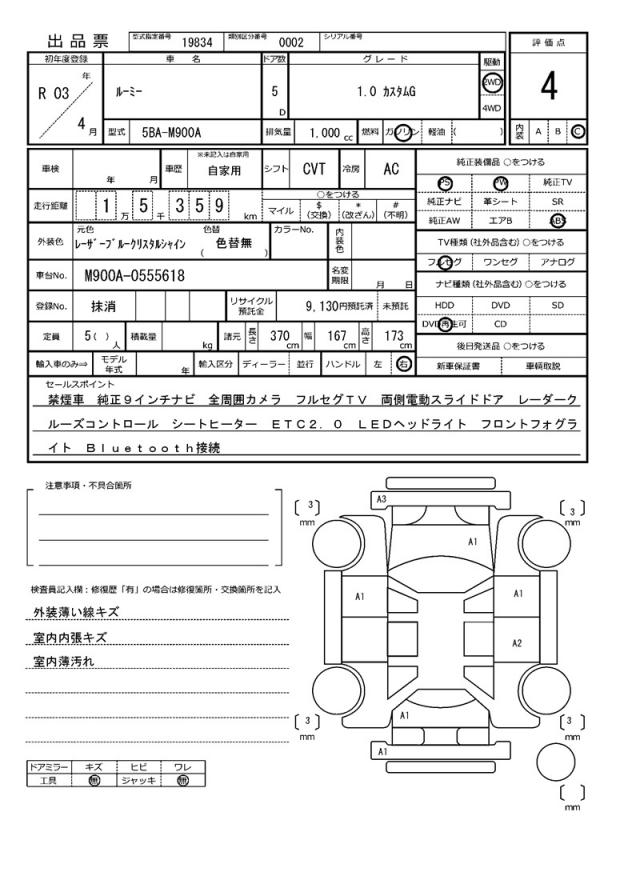 出品票 型式指定番号 19834 類別区分番号 0002 シリアル番号
初年度登録 車名 ドア数 グレード 駆動 評価点
R 03 年 4 月 ルーミー 5 D 1.0 カスタムG 2WD 4WD 4
型式 5BA-M900A 排気量 1.000 cc 燃料 ガソリン 軽油 ( ) 内装 A B C
車検 年 月 車歴 ※未記入は自家用 自家用 シフト CVT 冷房 AC 純正装備品 ○をつける
PS PW 純正TV
走行距離 1 万 5 千 3 5 9 km ○をつける マイル $ (交換) * (改ざん) # (不明) 純正ナビ 革シート SR
純正AW エアB ABS
外装色 元色 レーザーブルークリスタルシャイン 色替 ( 色替無 ) カラーNo. 内装色 TV種類 (社外品含む) ○をつける
フルセグ ワンセグ アナログ
車台No. M900A-0555618 名変期限 月 日 ナビ種類 (社外品含む) ○をつける
登録No. 抹消 リサイクル預託金 9,130円預託済 未預託 HDD DVD SD
DVD再生可 CD
定員 5( ) 人 積載量 kg 諸元 長さ 370 cm 幅 167 cm 高さ 173 cm 後日発送品 ○をつける
輸入車のみ⇒ モデル年式 年 輸入区分 ディーラー 並行 ハンドル 左 右 新車保証書 車輌取説
セールスポイント
禁煙車 純正9インチナビ 全周囲カメラ フルセグTV 両側電動スライドドア レーダーク
ルーズコントロール シートヒーター ETC2.0 LEDヘッドライト フロントフォグラ
イト Bluetooth接続
注意事項・不具合箇所
検査員記入欄:修復歴「有」の場合は修復箇所・交換箇所を記入
外装薄い線キズ
室内内張キズ
室内薄汚れ
ドアミラー キズ ヒビ ワレ
工具 無 ジャッキ 無
A3
[ 3 ] mm [ 3 ] mm
A1
A1 A1
A2
A1
[ 3 ] mm [ 3 ] mm
A1
[ ] mm